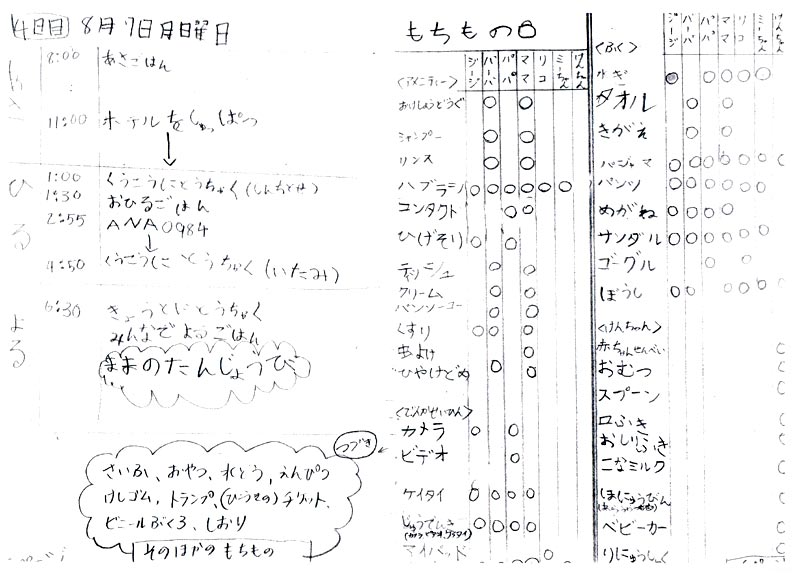 4日目 8月7日月曜日
8:00 あさごはん
11:00 ホテルをしゅっぱつ
ひる
1:00 くうこうにとうちゃく(しんちとせ)
1:30 おひるごはん
2:55 ANA0984
4:50 くうこうにとうちゃく(いたみ)
よる
6:30 きょうとにとうちゃく
みんなでよるごはん
ままのたんじょうび
つづき
さいふ、おやつ、すいとう、えんぴつ
けしゴム、トランプ、(ひこうきの)チケット、
ビニールぶくろ、しおり
そのほかのもちもの
もちもの
ジージ バーバ パパ ママ リコ ミーちゃん けんちゃん
<アメニティー>
おけしょうどうぐ
シャンプー
リンス
ハブラシ
コンタクト
ひげそり
ティッシュ
クリーム
バンソーコー
くすり
虫よけ
ひやけどめ
<でんかせいひん>
カメラ
ビデオ
ケイタイ
じゅうでんき
アイパッド
ジージ バーバ パパ ママ リコ ミーちゃん けんちゃん
<ふく>
タオル
きがえ
パジャマ
パンツ
めがね
サンダル
ゴーグル
ぼうし
<けんちゃん>
赤ちゃんせんべい
おむつ
スプーン
口ふき
おしりふき
こなミルク
ほにゅうびん
ベビーカー
りにゅうしょく